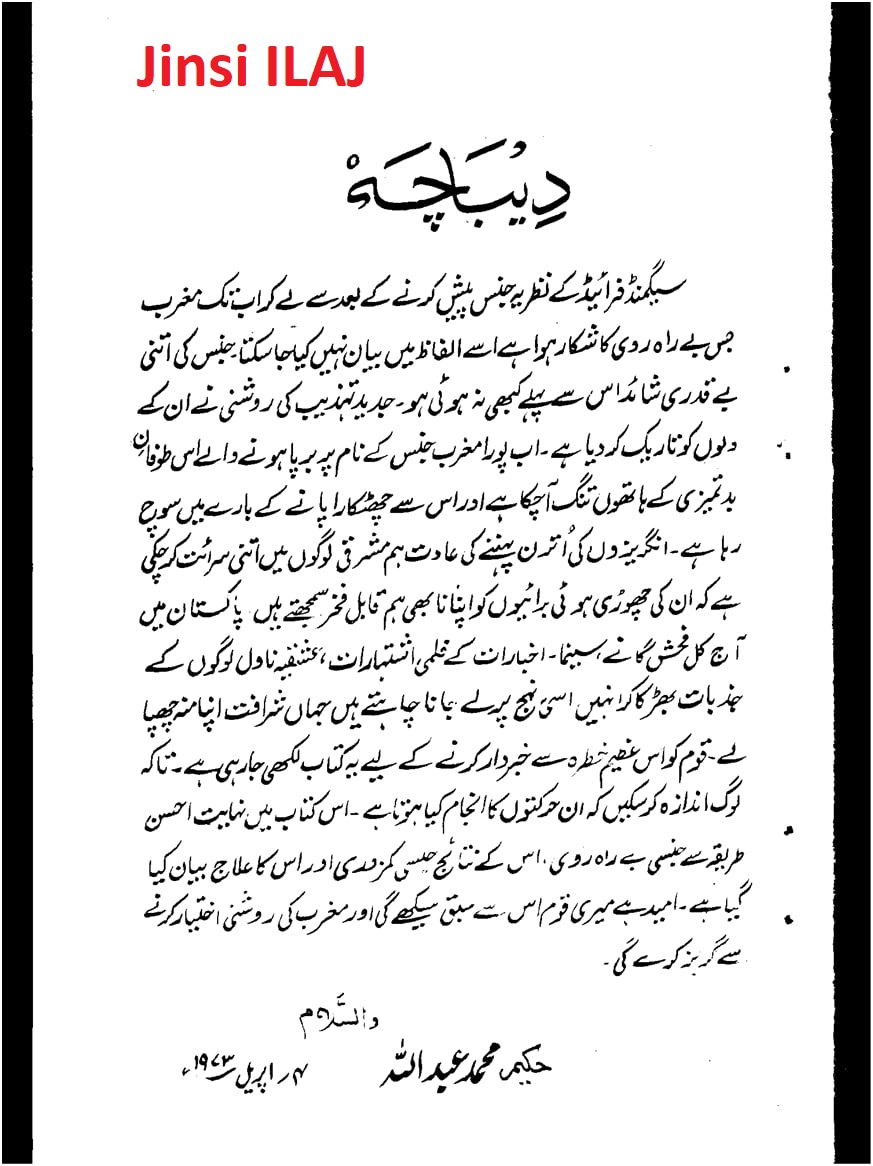 Jinsi ILAJ
دِیْبَاچَہْ
سیگمنڈ فرائیڈ کے نظریہ جنس پیش کرنے کے بعد سے لے کر اب تک مغرب
جس بے راہ روی کا شکار ہوا ہے اسے الفاظ میں بیان نہیں کیا جا سکتا۔ جنس کی اتنی
بے قدری شائد اس سے پہلے کبھی نہ ہوئی ہو۔ جدید تہذیب کی روشنی نے ان کے
دلوں کو تاریک کر دیا ہے۔ اب پورا مغرب جنس کے نام پر برپا ہونے والے اس طوفان
بدتمیزی کے ہاتھوں تنگ آ چکا ہے اور اس سے چھٹکارا پانے کے بارے میں سوچ
رہا ہے۔ انگریزوں کی اُترن پہننے کی عادت ہم مشرقی لوگوں میں اتنی سرائت کر چکی
ہے کہ ان کی چھوڑی ہوئی برائیوں کو اپنانا بھی ہم قابل فخر سمجھتے ہیں پاکستان میں
آج کل فحش گانے، سینما۔ اخبارات کے فلمی اشتہارات، عشقیہ ناول لوگوں کے
جذبات بھڑکا کر انہیں اسی نہج پر لے جانا چاہتے ہیں جہاں شرافت اپنا منہ چھپا
لے۔ قوم کو اس عظیم خطرہ سے خبردار کرنے کے لیے یہ کتاب لکھی جا رہی ہے۔ تاکہ
لوگ اندازہ کر سکیں کہ ان حرکتوں کا انجام کیا ہوتا ہے۔ اس کتاب میں نہایت احسن
طریقہ سے جنسی بے راہ روی، اس کے نتائج جیسی کمزوری اور اس کا علاج بیان کیا
گیا ہے۔ امید ہے میری قوم اس سے سبق سیکھے گی اور مغرب کی روشنی اختیار کرنے
سے گریز کرے گی۔
والسَّلام
حکیم محمد عبد اللہ
۴ر اپریل ۱۹۷۳ء